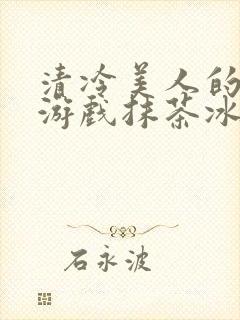 清冷美人的
游戏抹茶冰
石永波